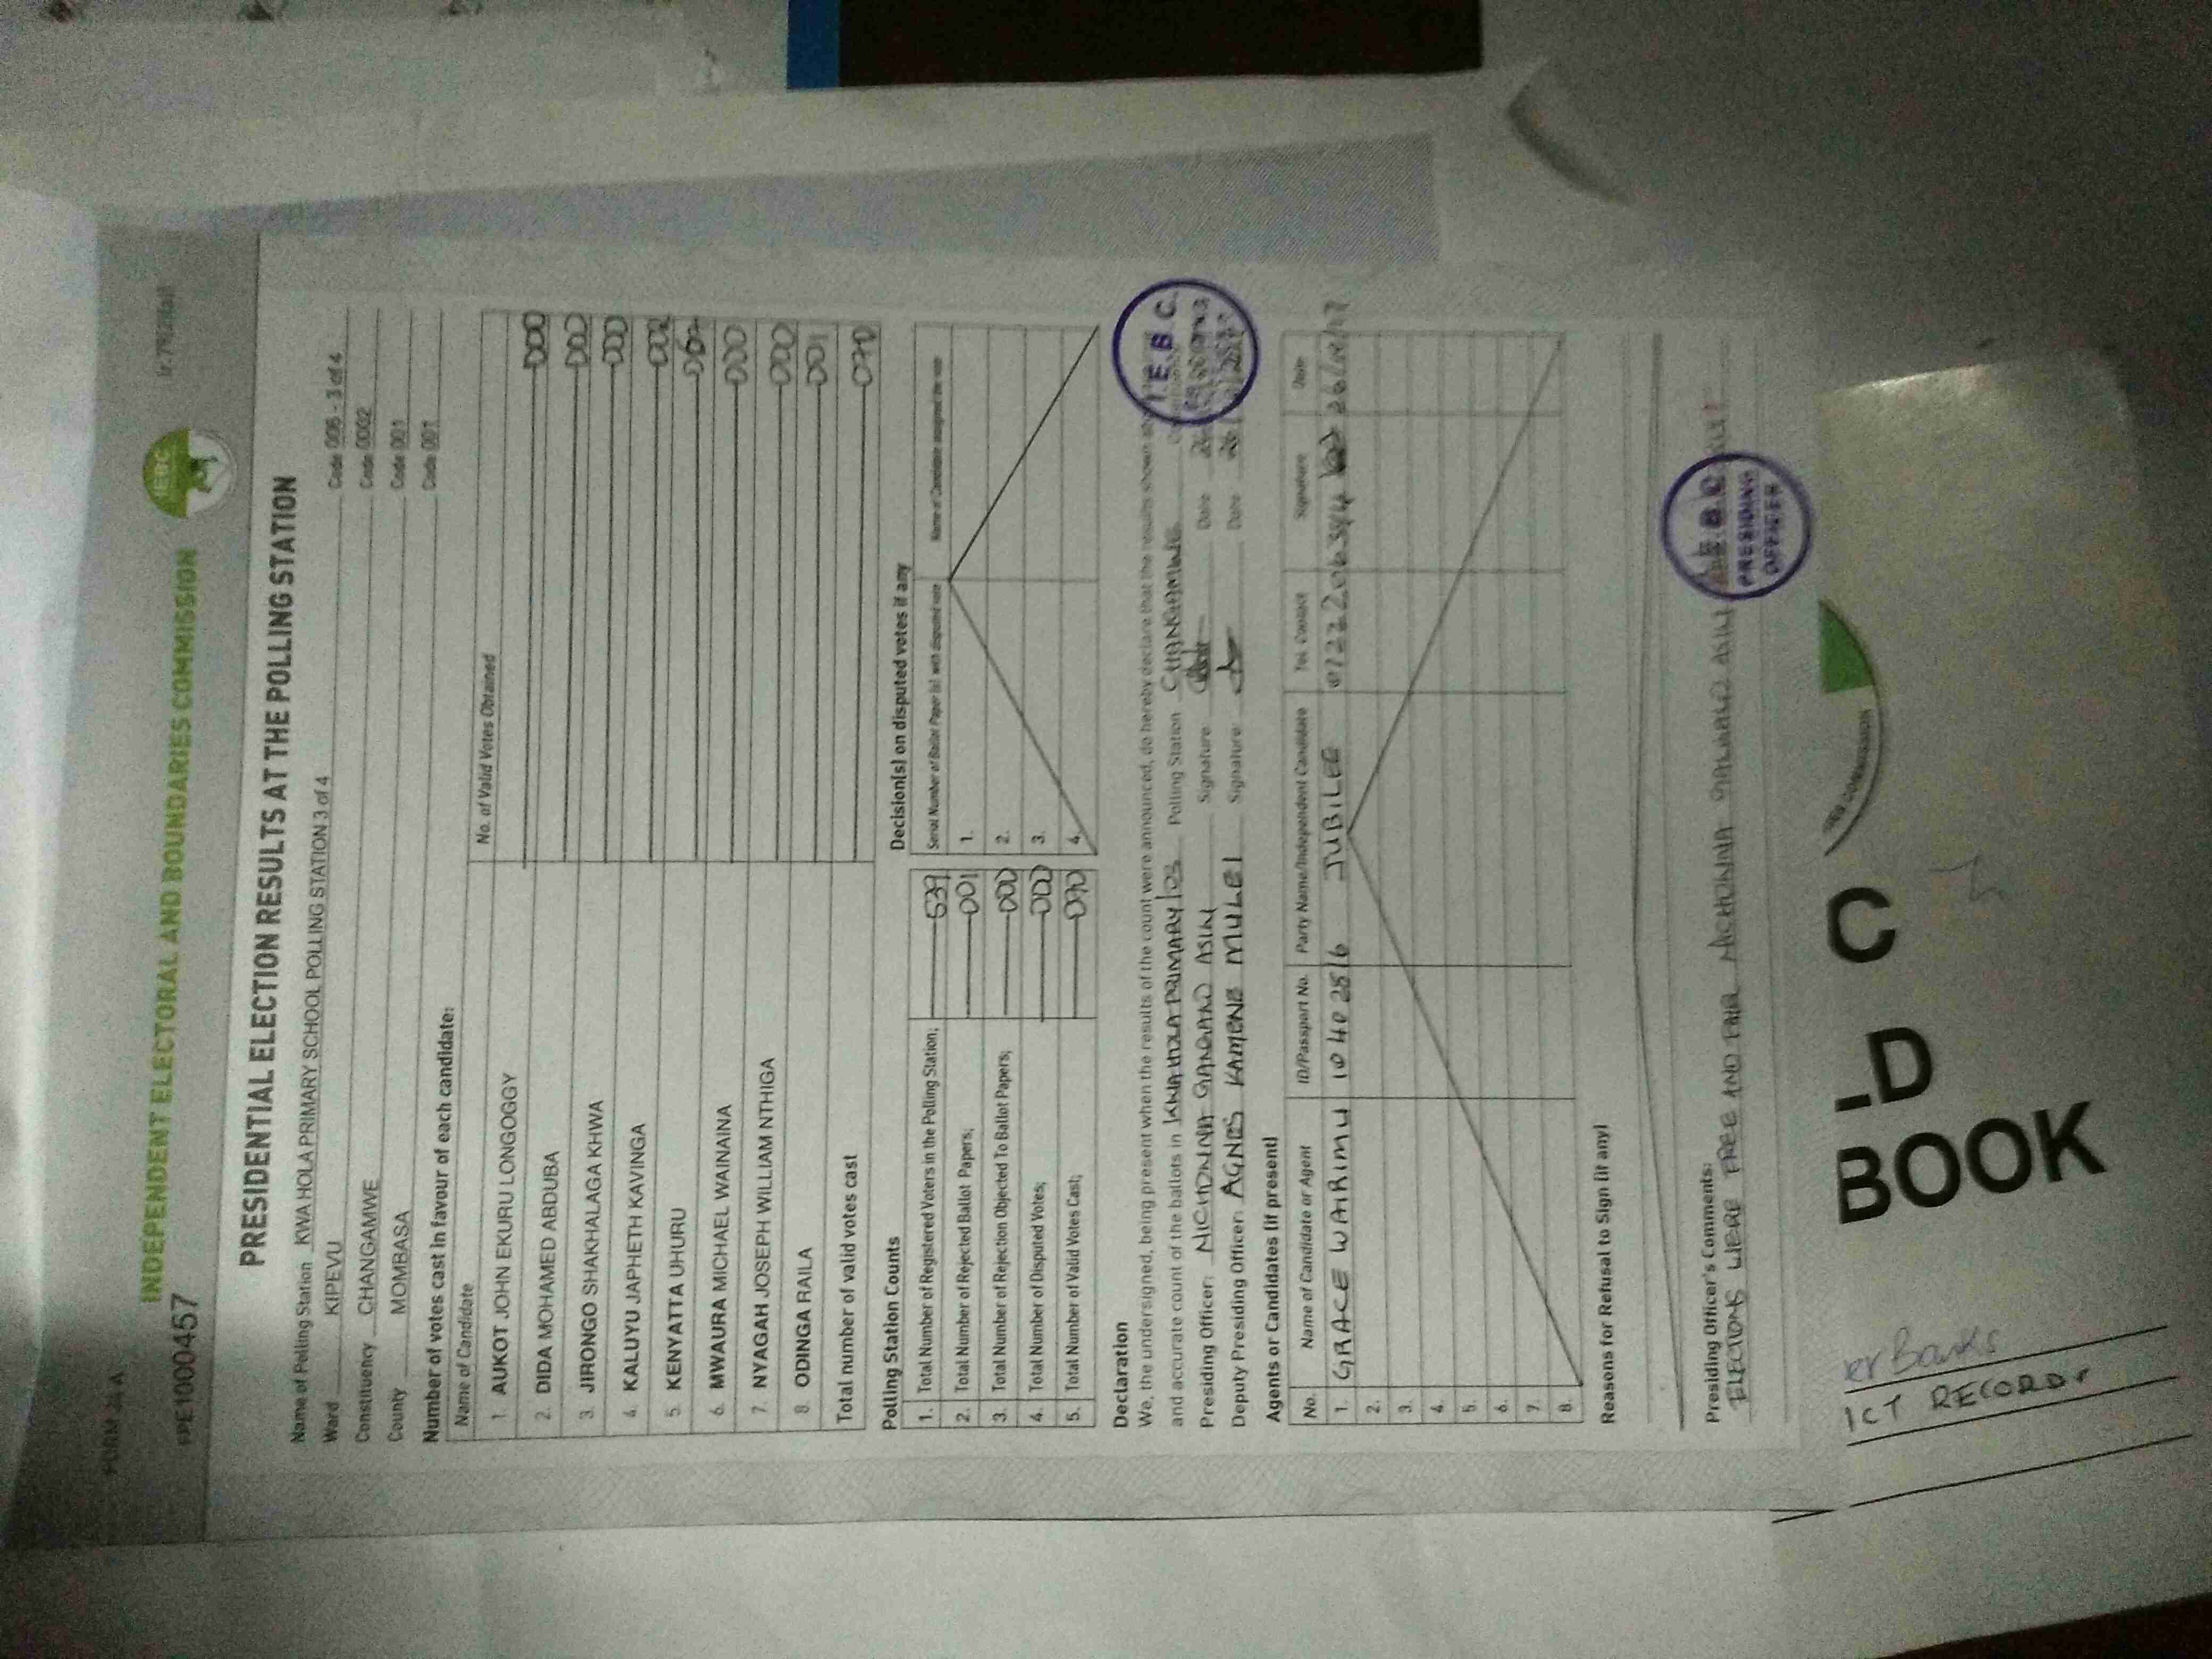 FORM 34 A
INDEPENDENT ELECTORAL AND BOUNDARIES COMMISSION
IEBC
PRE1000457
PRESIDENTIAL ELECTION RESULTS AT THE POLLING STATION
Name of Polling Station KWA HOLA PRIMARY SCHOOL POLLING STATION 3 of 4 Code 005 - 3 of 4
Ward KIPEVU Code 0002
Constituency CHANGAMWE Code 001
County MOMBASA Code 001
Number of votes cast in favour of each candidate:
Name of Candidate No. of Valid Votes Obtained
1. AUKOT JOHN EKURU LONGOGGY 000
2. DIDA MOHAMED ABDUBA 000
3. JIRONGO SHAKHALAGA KHWA 000
4. KALUYU JAPHETH KAVINGA 002
5. KENYATTA UHURU
6. MWAURA MICHAEL WAINAINA 000
7. NYAGAH JOSEPH WILLIAM NTHIGA 000
8. ODINGA RAILA 001
Total number of valid votes cast 070
Polling Station Counts
1. Total Number of Registered Voters in the Polling Station; 539
2. Total Number of Rejected Ballot Papers; 001
3. Total Number of Rejection Objected To Ballot Papers; 000
4. Total Number of Disputed Votes; 000
5. Total Number of Valid Votes Cast; 070
Decision(s) on disputed votes if any
Serial Number of Ballot Paper (s) with disputed vote Name of Candidate assigned the vote
1.
2.
3.
4.
Declaration
We, the undersigned, being present when the results of the count were announced, do hereby declare that the results shown
and accurate count of the ballots in KWA HOLA PRIMARY 03 Polling Station CHANGAMWE
Presiding Officer: Signature Date
Deputy Presiding Officer: AGNES KAMENE MULEI Signature Date
I.E.B.C.
Agents or Candidates (if present)
No. Name of Candidate or Agent ID/Passport No. Party Name/Independent Candidate Tel. Contact Signature Date
1. GRACE WAIRIMU 10402516 JUBILEE 0722206384 26/10/17
2.
3.
4.
5.
6.
7.
8.
Reasons for Refusal to Sign (if any)
Presiding Officer's Comments:
ELECTIONS WERE FREE AND FAIR
I.E.B.C.
PRESIDING
OFFICER
C
LD
BOOK
ICT RECORD